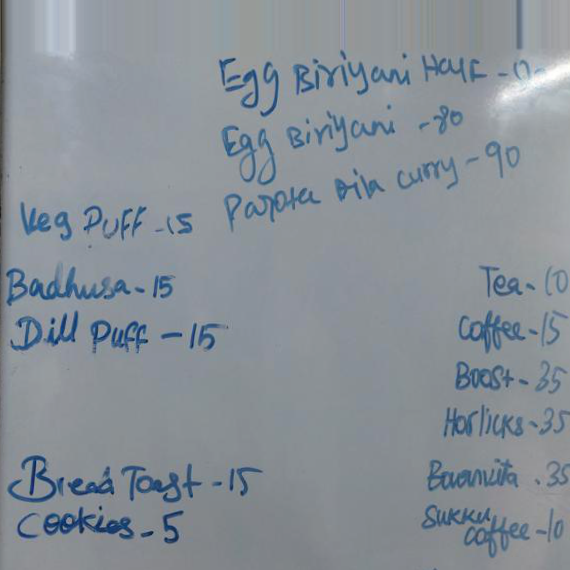 Egg Biriyani Half -
Egg Biriyani - 80
Parota curry - 90
Veg Puff - 15
Badhusa - 15
Dill Puff - 15
Bread Toast - 15
Cookies - 5
Tea - 10
Coffee - 15
Boost - 35
Horlicks - 35
Bournvita - 35
Sukku
coffee - 10